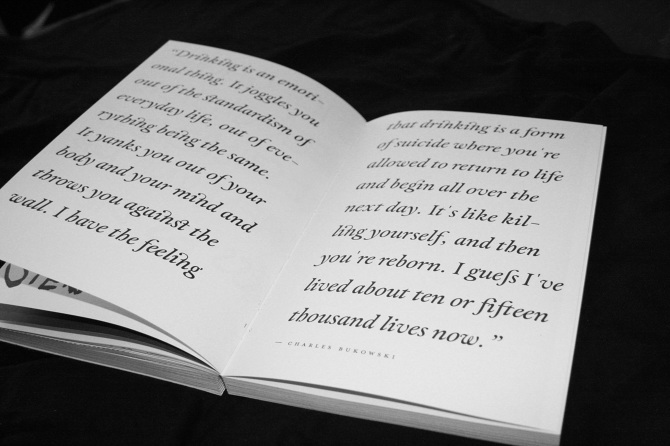 “Drinking is an emoti-
onal thing. It joggles you
out of the standardism of
everyday life, out of eve-
rything being the same.
It yanks you out of your
body and your mind and
throws you against the
wall. I have the feeling
that drinking is a form
of suicide where you're
allowed to return to life
and begin all over the
next day. It's like kil-
ling yourself, and then
you're reborn. I gueſs I've
lived about ten or fifteen
thousand lives now.”
— CHARLES BUKOWSKI